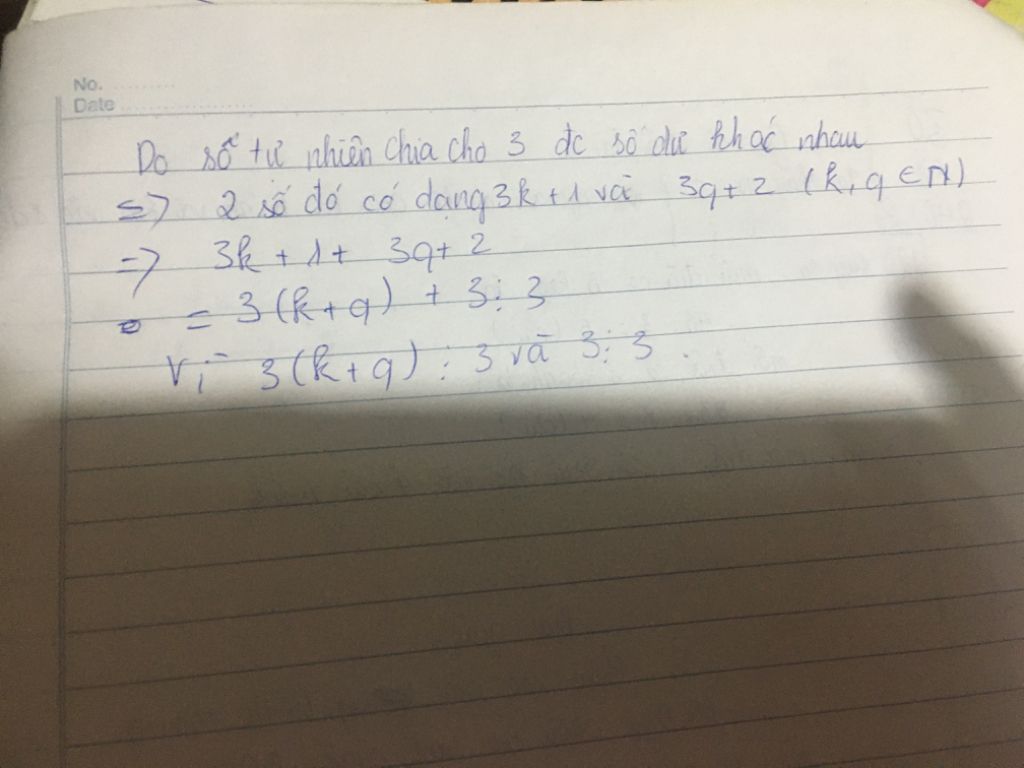 No.
Date
Do số tự nhiên chia cho 3 đc số dư khác nhau
=> 2 số đó có dạng 3k + 1 và 3q + 2 (k, q ∈ N)
=> 3k + 1 + 3q + 2
= 3(k + q) + 3 ⋮ 3
Vì 3(k + q) ⋮ 3 và 3 ⋮ 3.